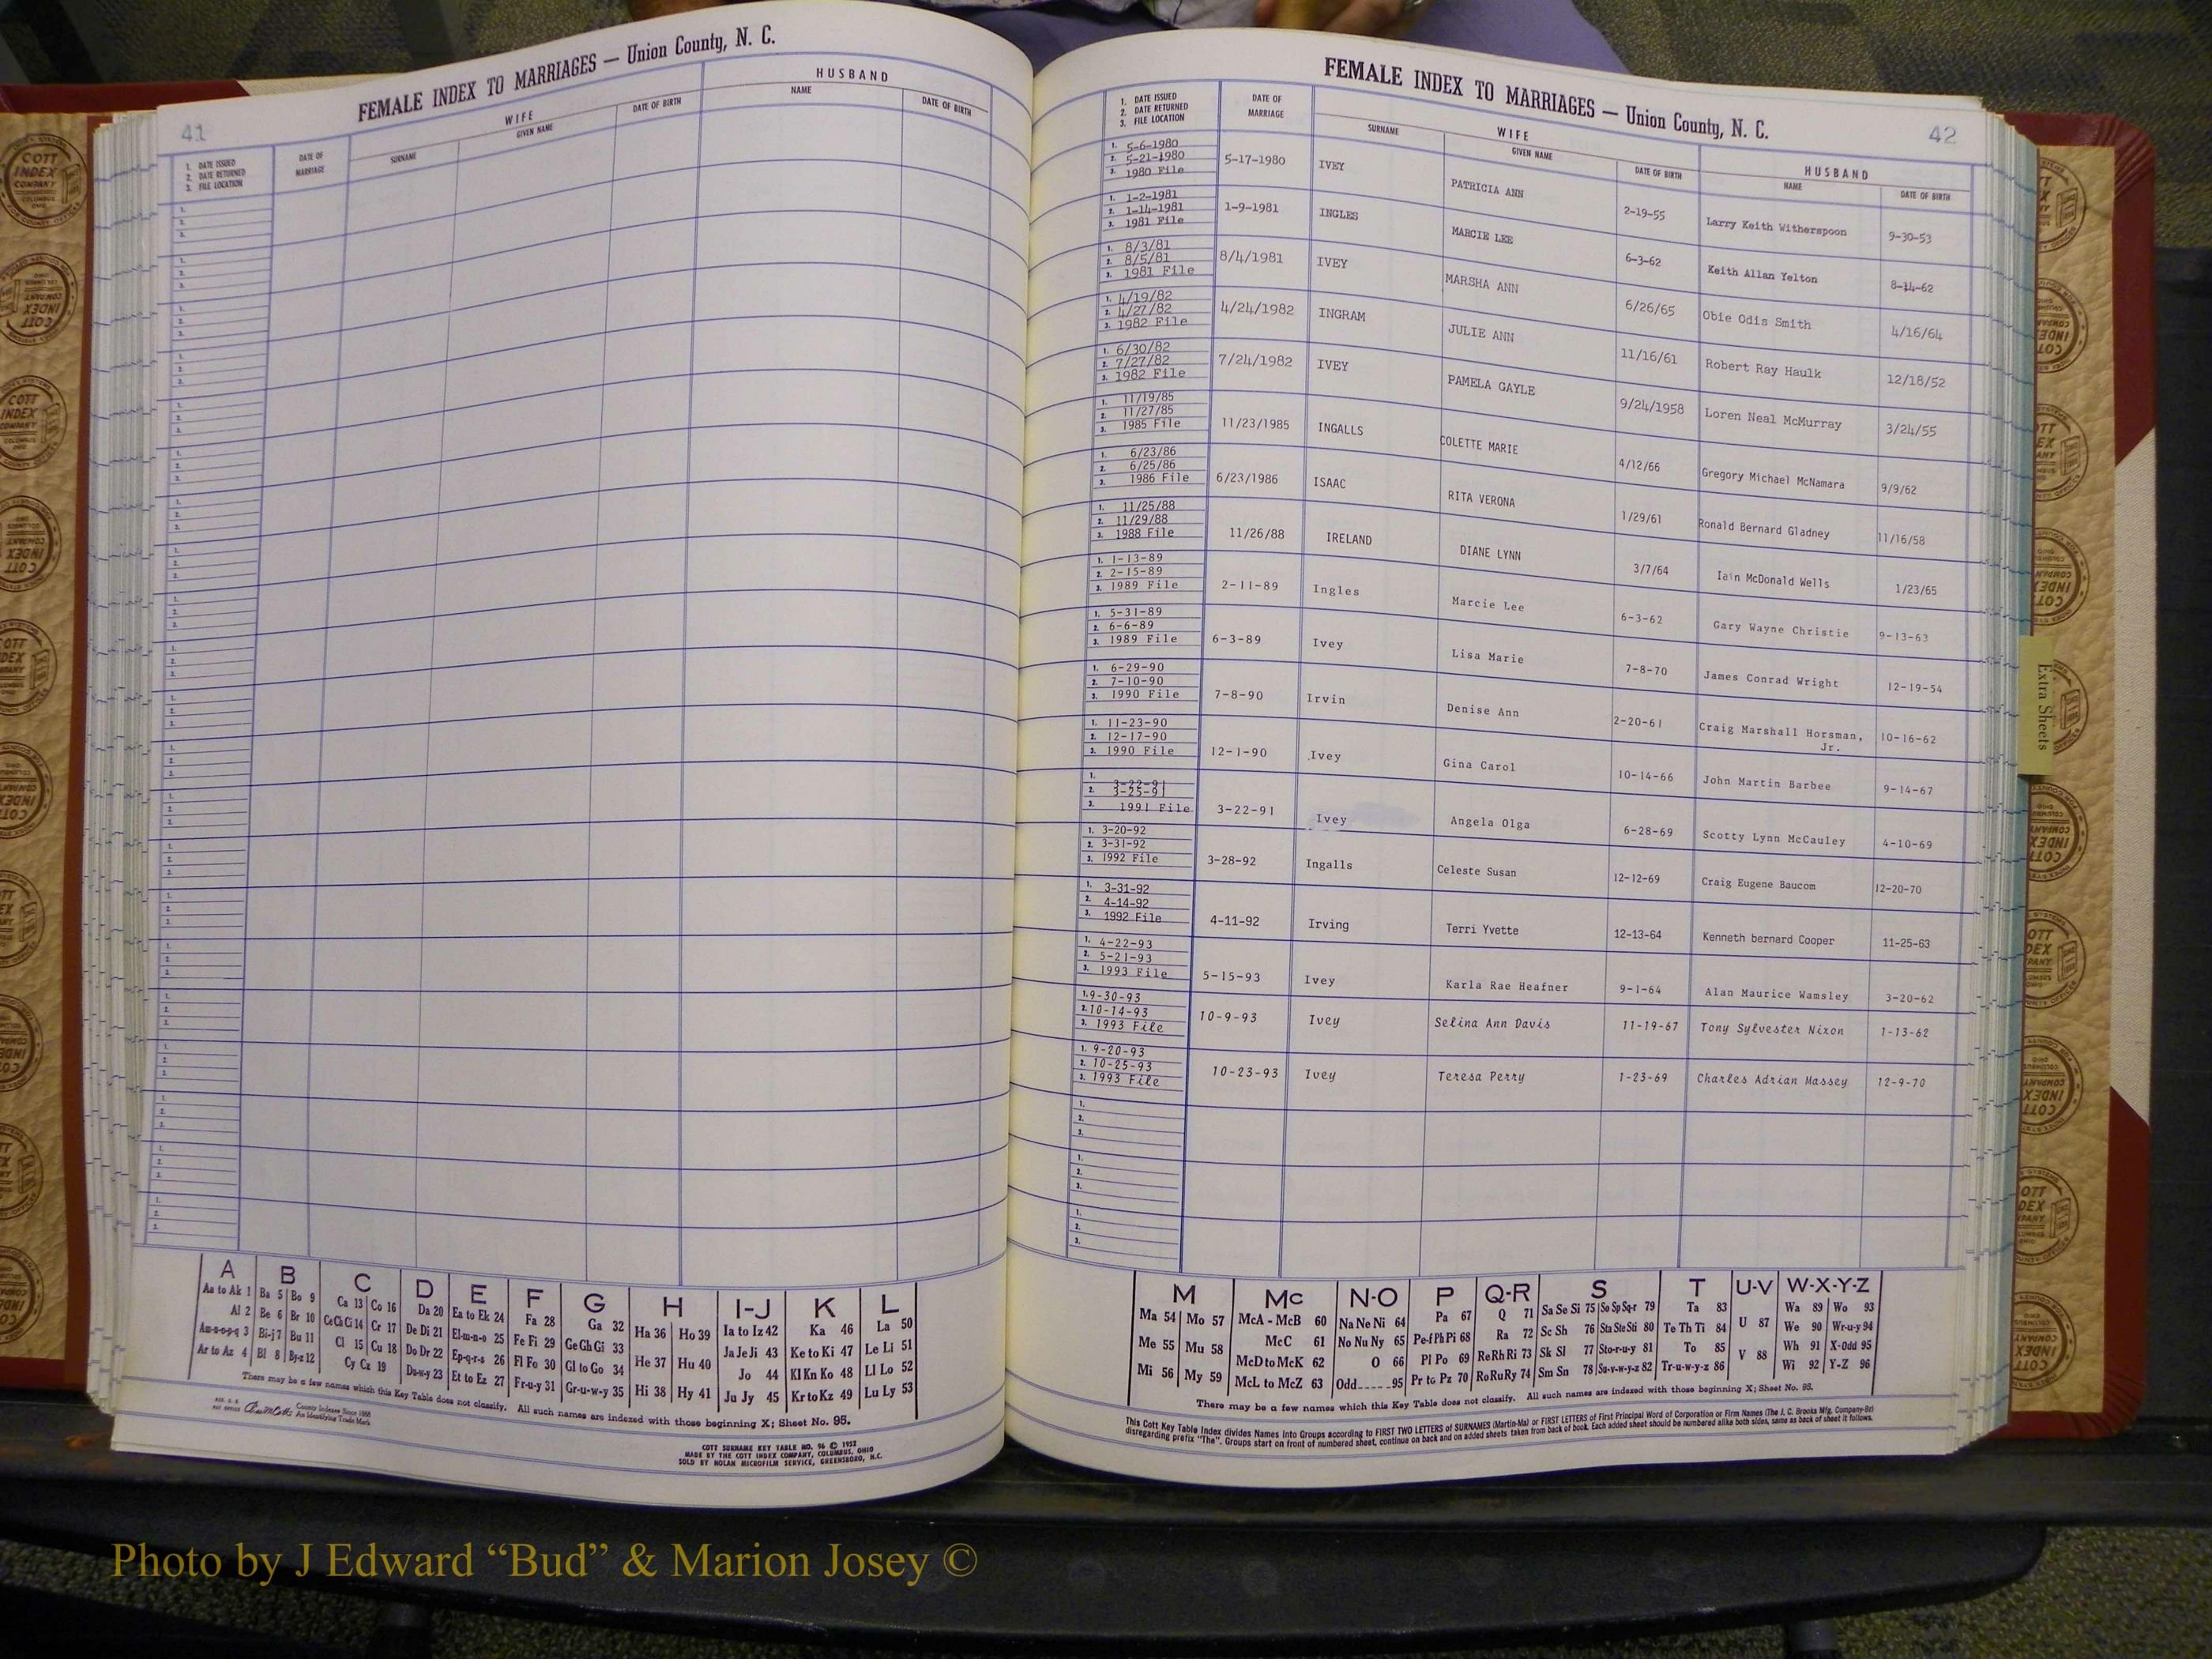 41
FEMALE INDEX TO MARRIAGES — Union County, N. C.
1. DATE ISSUED
2. DATE RETURNED
3. FILE LOCATION
DATE OF MARRIAGE
WIFE
SURNAME GIVEN NAME DATE OF BIRTH
HUSBAND
NAME DATE OF BIRTH
A B C D E F G H I-J K L
Aa to Ak 1 Ba 5 Bo 9 Ca 13 Co 16 Da 20 Ea to Ek 24 Fa 28 Ga 32 Ha 36 Ho 39 Ia to Iz 42 Ka 46 La 50
Al 2 Be 6 Br 10 Ce Ch Ci 14 Cr 17 De Di 21 El-m-n-o 25 Fe Fi 29 Ge Gh Gi 33 He 37 Hu 40 Ja Je Ji 43 Ke to Ki 47 Le Li 51
Am-n-o-p-q 3 Bi-j 7 Bu 11 Cl 15 Cu 18 Do Dr 22 Ep-q-r-s 26 Fl Fo 30 Gl to Go 34 Hi 38 Hy 41 Jo 44 Kl Kn Ko 48 Ll Lo 52
Ar to Az 4 Bl 8 By-z 12 Cy Cz 19 Du-w-y 23 Et to Ez 27 Fr-u-y 31 Gr-u-w-y 35 Ju Jy 45 Kr to Kz 49 Lu Ly 53
There may be a few names which this Key Table does not classify. All such names are indexed with those beginning X; Sheet No. 95.
County Indexes Since 1888
An Identifying Trade Mark
COTT SURNAME KEY TABLE NO. 96 © 1952
MADE BY THE COTT INDEX COMPANY, COLUMBUS, OHIO
SOLD BY NOLAN MICROFILM SERVICE, GREENSBORO, N.C.
42
FEMALE INDEX TO MARRIAGES — Union County, N. C.
1. DATE ISSUED
2. DATE RETURNED
3. FILE LOCATION
DATE OF MARRIAGE
WIFE
SURNAME GIVEN NAME DATE OF BIRTH
HUSBAND
NAME DATE OF BIRTH
1. 5-6-1980
2. 5-21-1980
3. 1980 File
5-17-1980 IVEY PATRICIA ANN 2-19-55 Larry Keith Witherspoon 9-30-53
1. 1-2-1981
2. 1-14-1981
3. 1981 File
1-9-1981 INGLES MARCIE LEE 6-3-62 Keith Allan Yelton 8-14-62
1. 8/3/81
2. 8/5/81
3. 1981 File
8/4/1981 IVEY MARSHA ANN 6/26/65 Obie Odis Smith 4/16/64
1. 4/19/82
2. 4/27/82
3. 1982 File
4/24/1982 INGRAM JULIE ANN 11/16/61 Robert Ray Haulk 12/18/52
1. 6/30/82
2. 7/27/82
3. 1982 File
7/24/1982 IVEY PAMELA GAYLE 9/24/1958 Loren Neal McMurray 3/24/55
1. 11/19/85
2. 11/27/85
3. 1985 File
11/23/1985 INGALLS COLETTE MARIE 4/12/66 Gregory Michael McNamara 9/9/62
1. 6/23/86
2. 6/25/86
3. 1986 File
6/23/1986 ISAAC RITA VERONA 1/29/61 Ronald Bernard Gladney 11/16/58
1. 11/25/88
2. 11/29/88
3. 1988 File
11/26/88 IRELAND DIANE LYNN 3/7/64 Iain McDonald Wells 1/23/65
1. 1-13-89
2. 2-15-89
3. 1989 File
2-11-89 Ingles Marcie Lee 6-3-62 Gary Wayne Christie 9-13-63
1. 5-31-89
2. 6-6-89
3. 1989 File
6-3-89 Ivey Lisa Marie 7-8-70 James Conrad Wright 12-19-54
1. 6-29-90
2. 7-10-90
3. 1990 File
7-8-90 Irvin Denise Ann 2-20-61 Craig Marshall Horsman, Jr. 10-16-62
1. 11-23-90
2. 12-17-90
3. 1990 File
12-1-90 Ivey Gina Carol 10-14-66 John Martin Barbee 9-14-67
1. 3-22-91
2. 3-25-91
3. 1991 File
3-22-91 Ivey Angela Olga 6-28-69 Scotty Lynn McCauley 4-10-69
1. 3-20-92
2. 3-31-92
3. 1992 File
3-28-92 Ingalls Celeste Susan 12-12-69 Craig Eugene Baucom 12-20-70
1. 3-31-92
2. 4-14-92
3. 1992 File
4-11-92 Irving Terri Yvette 12-13-64 Kenneth bernard Cooper 11-25-63
1. 4-22-93
2. 5-21-93
3. 1993 File
5-15-93 Ivey Karla Rae Heafner 9-1-64 Alan Maurice Wamsley 3-20-62
1. 9-30-93
2. 10-14-93
3. 1993 File
10-9-93 Ivey Selina Ann Davis 11-19-67 Tony Sylvester Nixon 1-13-62
1. 9-20-93
2. 10-25-93
3. 1993 File
10-23-93 Ivey Teresa Perry 1-23-69 Charles Adrian Massey 12-9-70
Extra Sheets
M Mc N-O P Q-R S T U-V W-X-Y-Z
Ma 54 Mo 57 McA - McB 60 Na Ne Ni 64 Pa 67 Q 71 Sa Se Si 75 So Sp Sq-r 79 Ta 83 U 87 Wa 89 Wo 93
Me 55 Mu 58 McC 61 No Nu Ny 65 Pe-f Ph Pi 68 Ra 72 Sc Sh 76 Sta Ste Sti 80 Te Th Ti 84 V 88 We 90 Wr-u-y 94
Mi 56 My 59 McD to McK 62 O 66 Pl Po 69 Re Rh Ri 73 Sk Sl 77 Sto-r-u-y 81 To 85 Wh 91 X-Odd 95
McL to McZ 63 Odd 95 Pr to Pz 70 Ro Ru Ry 74 Sm Sn 78 Su-v-w-y-z 82 Tr-u-w-y-z 86 Wi 92 Y-Z 96
There may be a few names which this Key Table does not classify. All such names are indexed with those beginning X; Sheet No. 95.
This Cott Key Table Index divides Names Into Groups according to FIRST TWO LETTERS of SURNAMES (Martin-Ma) or FIRST LETTERS of First Principal Word of Corporation or Firm Names (The J. C. Brooks Mfg. Company-Br)
disregarding prefix "The". Groups start on front of numbered sheet, continue on back and on added sheets taken from back of book. Each added sheet should be numbered alike both sides, same as back of sheet it follows.
Photo by J Edward “Bud” & Marion Josey ©